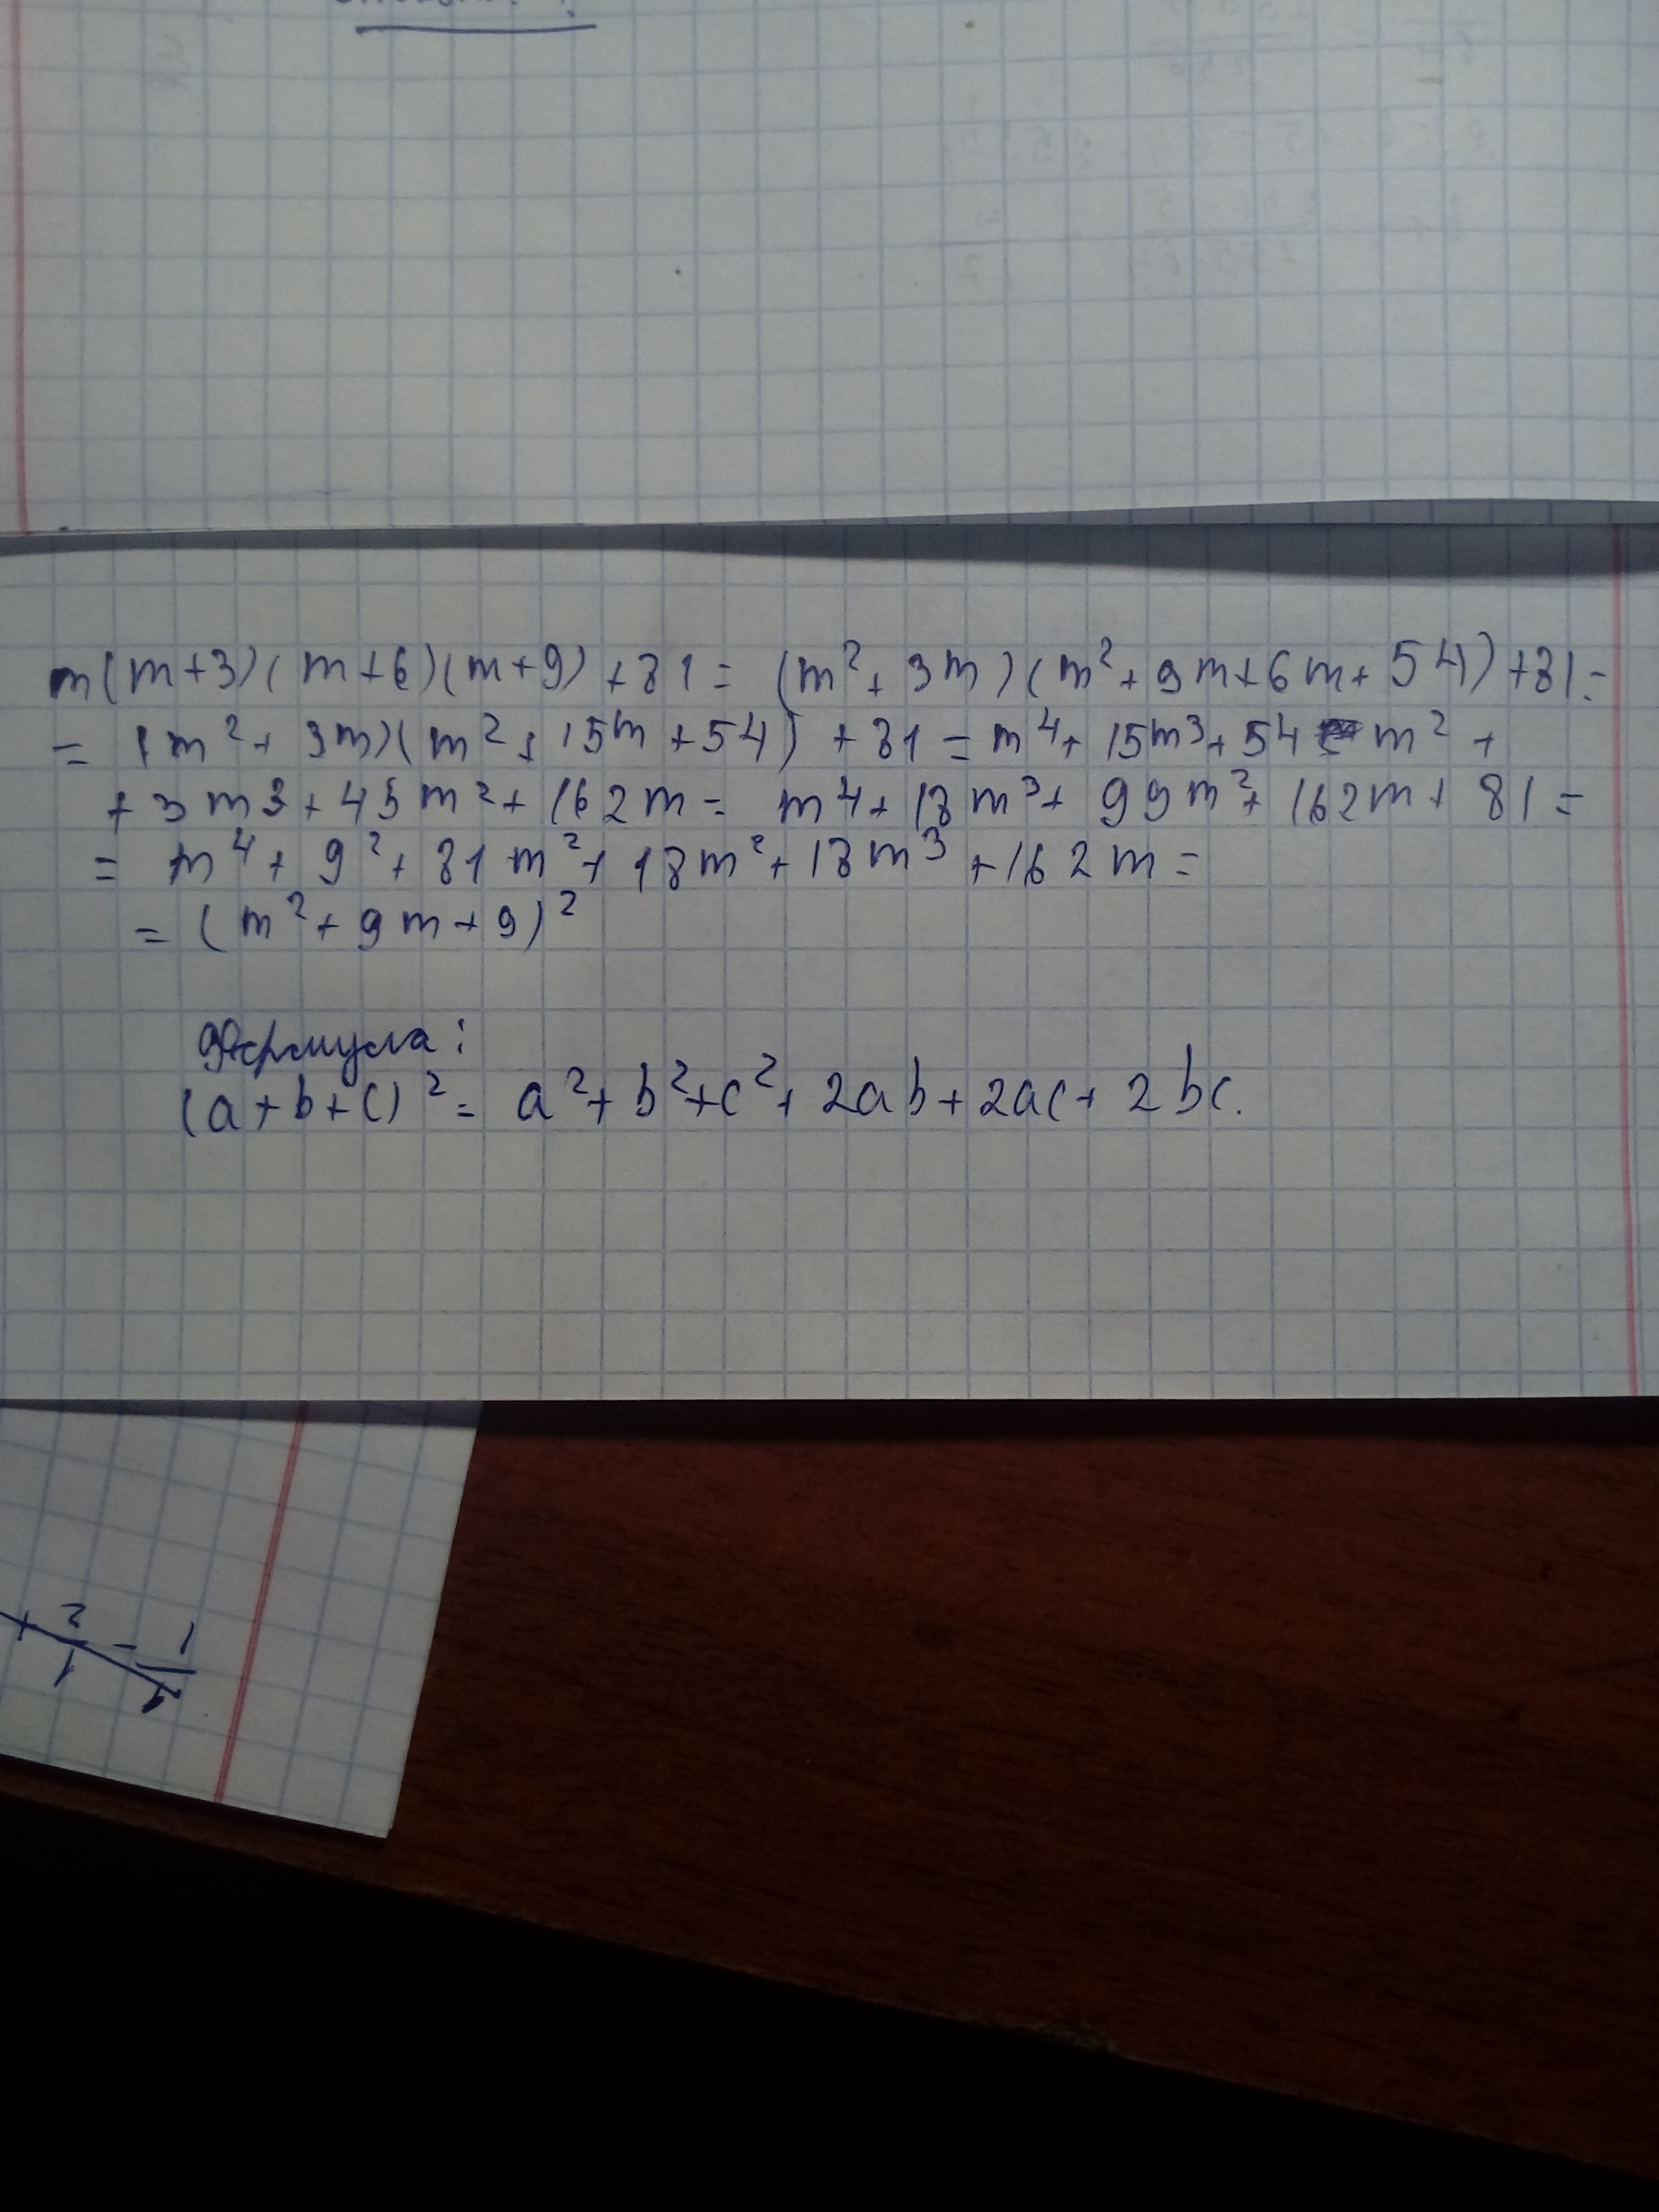 m(m+3)(m+6)(m+9)+81=(m²+3m)(m²+9m+6m+54)+81=
=(m²+3m)(m²+15m+54)+81=m⁴+15m³+54m²+
+3m³+45m²+162m=m⁴+18m³+99m²+162m+81=
=m⁴+9²+81m²+18m²+18m³+162m=
=(m²+9m+9)²
Формула:
(a+b+c)²=a²+b²+c²+2ab+2ac+2bc.